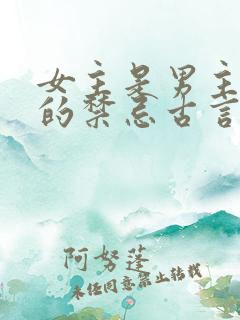 女主是男主
的禁忌古言
阿努蓬
未经同意禁止转载